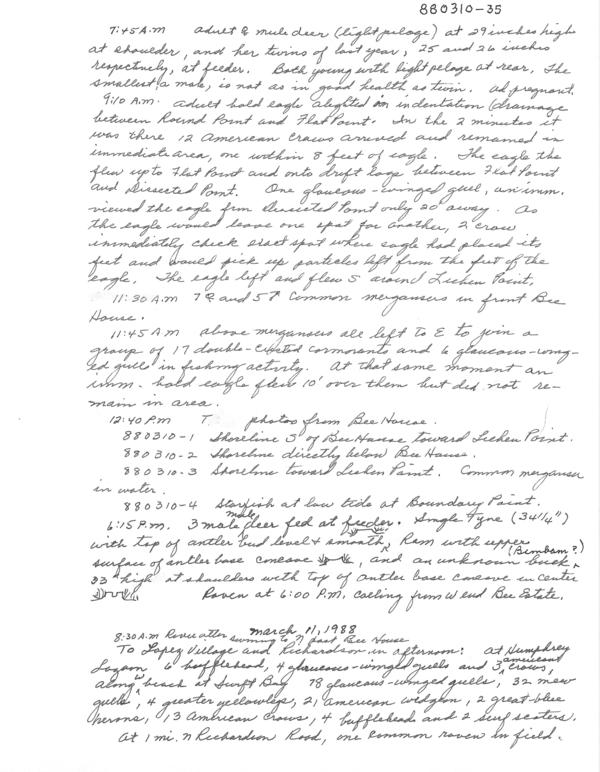 880310-35
7:45 A.M adult ♀ mule deer (light pelage) at 29 inches high
at shoulder, and her twins of last year, 25 and 26 inches
respectively, at feeder. Both young with light pelage at rear, The
smallest a male, is not as in good health as twin. ad. pregnant.
9:10 A.M. adult bald eagle alighted on indentation (drainage
between Round Point and Flat Point. In the 2 minutes it
was there 12 American Crows arrived and remained in
immediate area, one within 8 feet of eagle. The eagle the
flew up to Flat Point and onto drift logs between Flat Point
and Dissected Point. One glaucous-winged gull, an imm.
viewed the eagle from Dissected Point only 20' away. As
the eagle would leave one spot for another, 2 crow
immediately check exact spot where eagle had placed its
feet and would pick up particles left from the feet of the
eagle. The eagle left and flew S around Lichen Point.
11:30 A.M 7♀ and 5♂ Common mergansers in front Bee
House.
11:45 A.M above mergansers all left to E to join a
group of 17 double-crested cormorants and 6 glaucous-wing-
ed gulls in fishing activity. At that same moment an
imm. bald eagle flew 10' over them but did not re-
main in area.
12:40 P.M T. photos from Bee House.
880310-1 Shoreline S of Bee House toward Lichen Point.
880310-2 Shoreline directly below Bee House.
880310-3 Shoreline toward Lichen Point. Common merganser
in water.
880310-4 Starfish at low tide at Boundary Point.
6:15 P.M. 3 male deer fed at feeder. Single Tyne (34 1/4")
male
with top of antler bud level & smooth, Ram with upper
surface of antler base concave, and an unknown buck (Bimbam?)
33" high at shoulders with top of antler base concave in center
Raven at 6:00 P.M. calling from W end Bee Estate.
March 11, 1988
8:30 A.M River otter swimming to N past Bee House
To Lopez Village and Richardson in afternoon: at Humphrey
Lagoon 6 bufflehead, 4 glaucous-winged gulls and 3 american crows,
along beach at Swift Bay 78 glaucous-winged gulls, 32 mew
gulls, 4 greater yellowlegs, 21 american widgeon, 2 great-blue
herons, 13 American crows, 4 buffleheads and 2 surf scoters.
At 1 mi. N Richardson Road, one common raven in field.